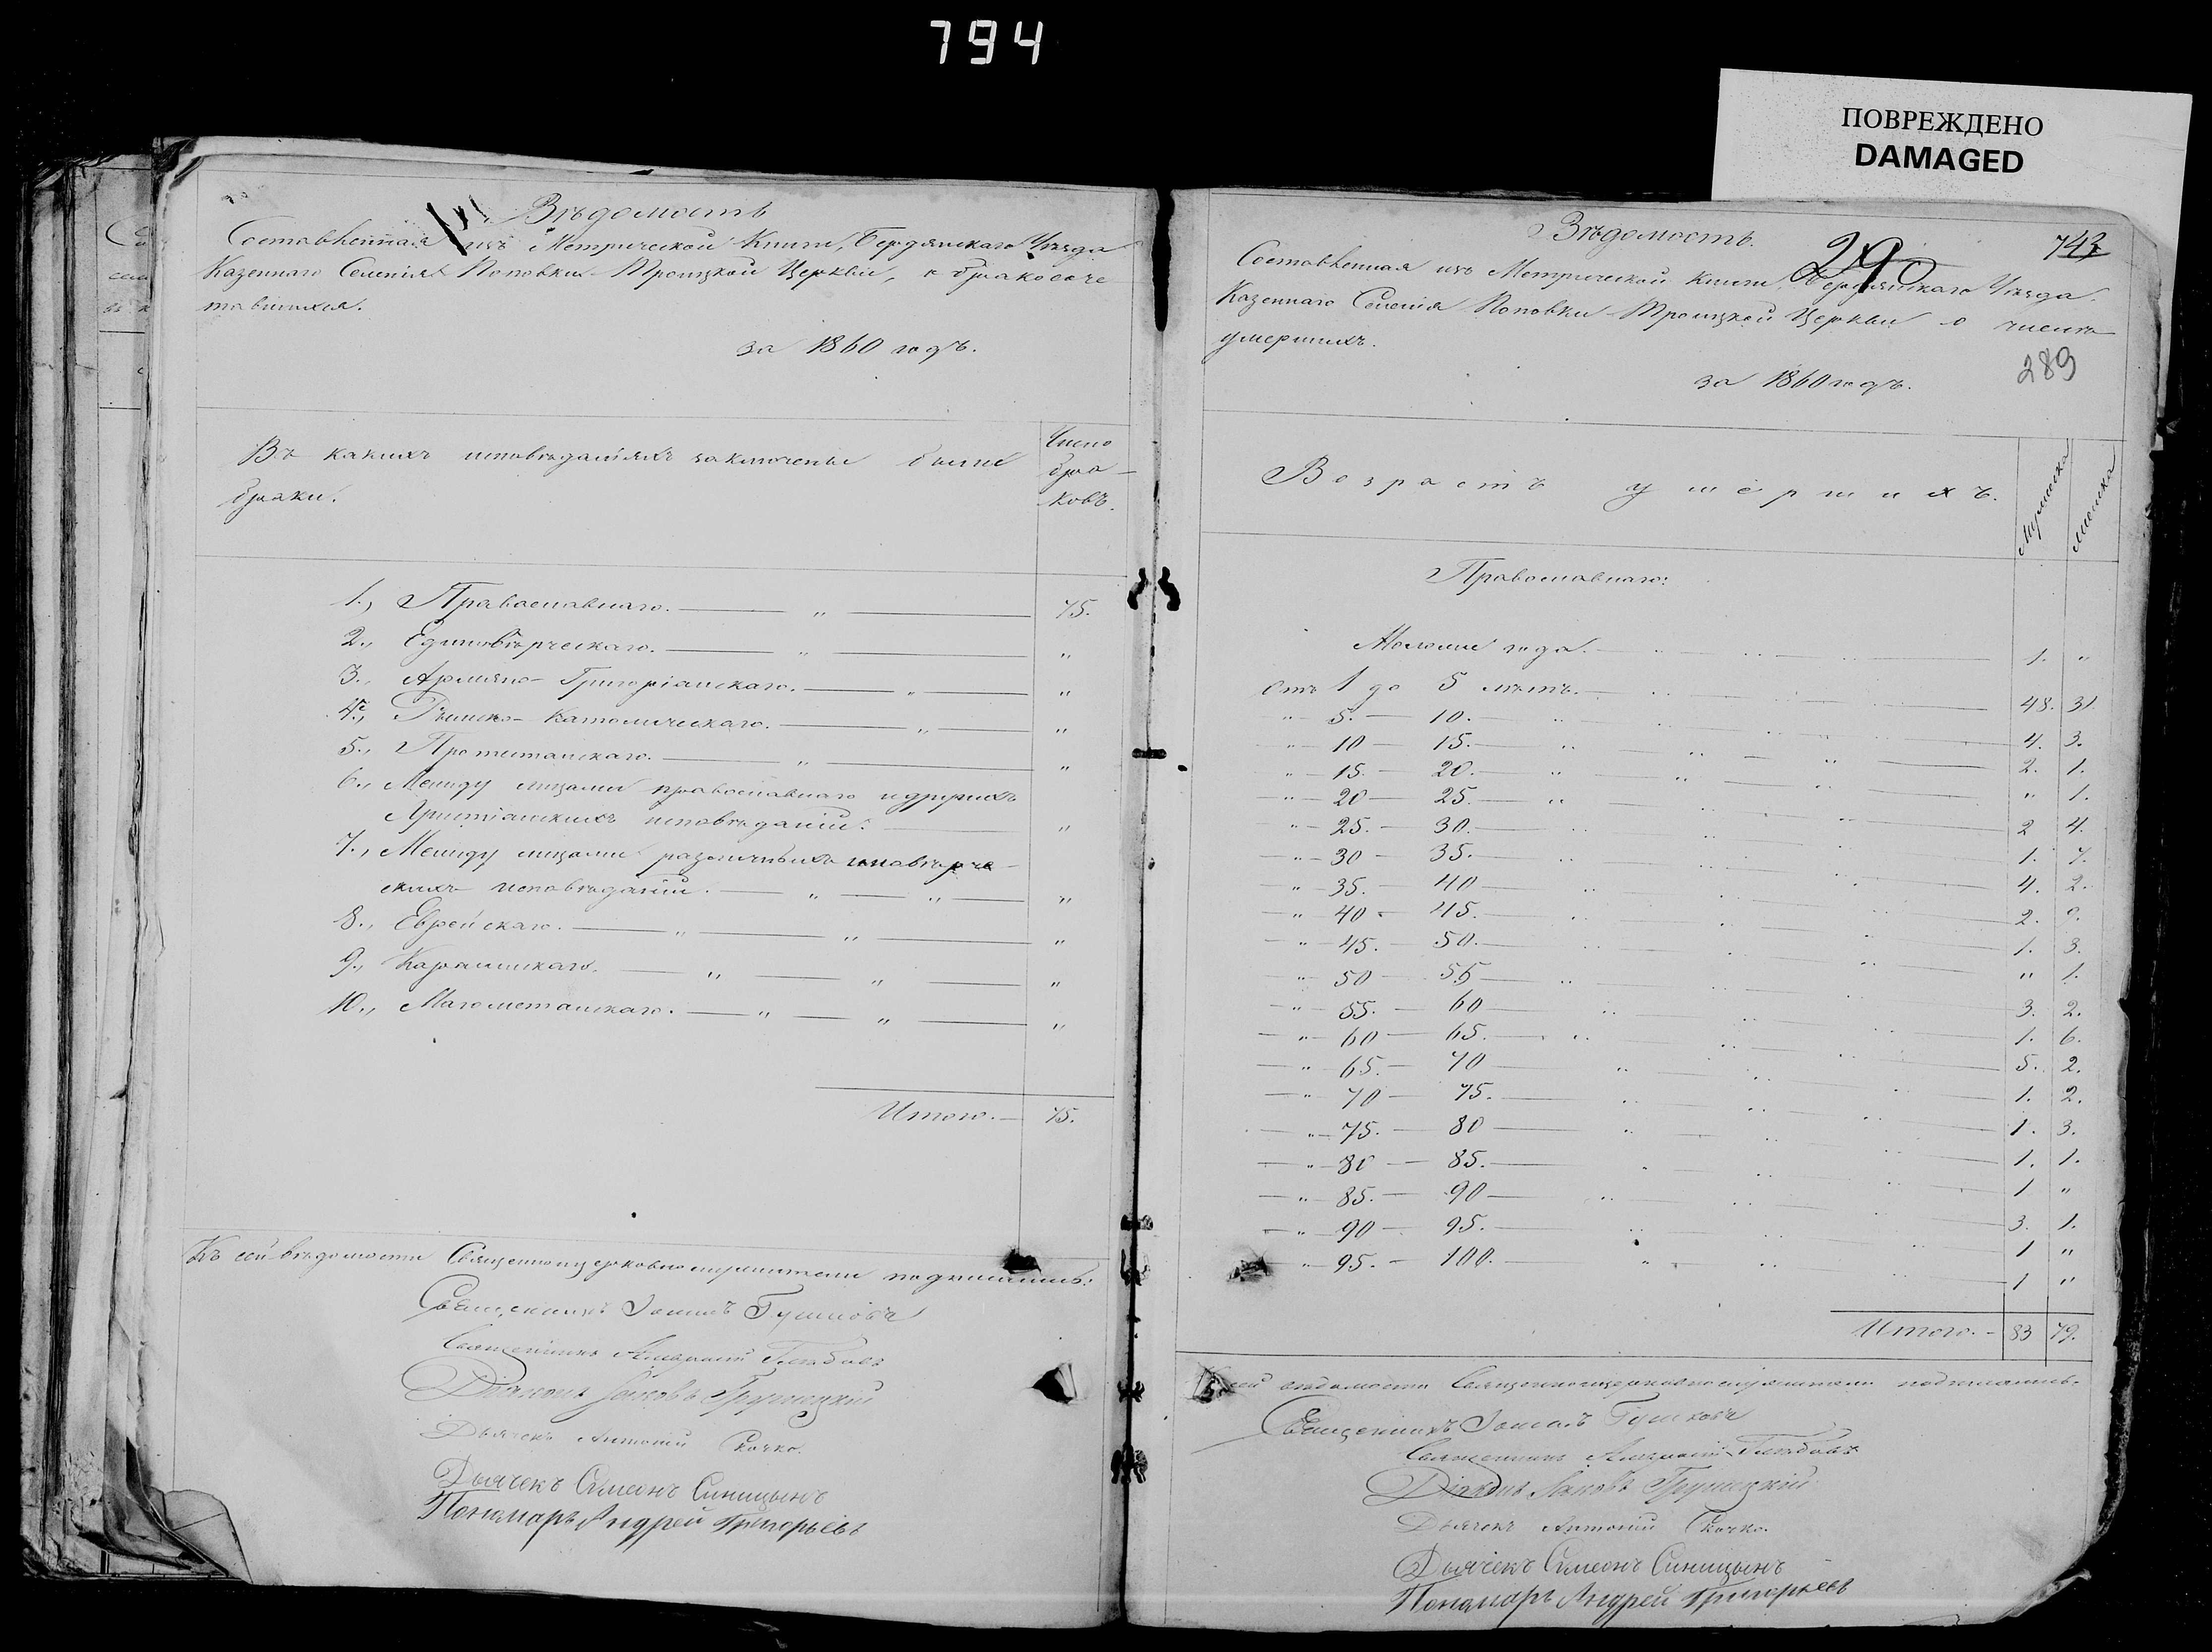 794
ПОВРЕЖДЕНО
DAMAGED
Вѣдомость
Составленная изъ Метрической Книги, Бердянскаго Уѣзда
Казеннаго Селенія Поповки Троицкой Церкви, о бракосоче
тавшихся.
за 1860 годъ.
Въ какихъ исповѣданіяхъ заключены были
браки.
Число
бра-
ковъ.
1., Православнаго. — „ — 75.
2., Единовѣрческаго. — „ — „
3., Армяно-Григоріанскаго. — „ — „
4., Римско-Католическаго. — „ — „
5., Протестанскаго. — „ — „
6., Между лицами православнаго и другихъ
Христіанскихъ исповѣданій. — „
7., Между лицами различныхъ иновѣрче-
скихъ исповѣданій. — „ — „ — „
8., Еврейскаго. — „ — „ — „
9., Караимскаго. — „ — „ — „
10., Магометанскаго. — „ — „ — „
Итого. — 75.
Къ сей вѣдомости Священноцерковнослужители подписались:
Священникъ Іоаннъ
Священникъ
Діаконъ Іаковъ Грушецкій
Дьячекъ Антоній Скочко.
Дьячекъ Симеонъ Синицынъ
Пономарь Андрей Григорьевъ
Вѣдомость.
743
290
Составленная изъ Метрической Книги, Бердянскаго Уѣзда,
Казеннаго Селенія Поповки Троицкой Церкви о числѣ
умершихъ.
289
за 1860 годъ.
Возрастъ умершихъ.
Мужеска
Женска
Православнаго:
Моложе года. — 1. „
Отъ 1 до 5 лѣтъ. — 48. 31.
„ 5. — 10. — 4. 3.
„ 10 — 15. — 2. 1.
„ 15. — 20. — „ 1.
„ 20 — 25. — 2 4.
„ 25. — 30. — 1. 7.
„ 30 — 35. — 4. 2.
„ 35. — 40 — 2.
„ 40 — 45. — 1. 3.
„ 45. — 50. — „ 1.
„ 50 — 55 — 3. 2.
„ 55. — 60 — 1. 6.
„ 60 — 65. — 5. 2.
„ 65. — 70 — 1. 2.
„ 70 — 75. — 1. 3.
„ 75. — 80 — 1. 1.
„ 80 — 85. — 1 „
„ 85. — 90 — 3. 1.
„ 90 — 95. — 1 „
„ 95. — 100. — 1 „
Итого. — 83 79.
сей вѣдомости Священноцерковнослужители подписались.
Священникъ Іоаннъ
Священникъ
Діаконъ Іаковъ Грушецкій
Дьячекъ Антоній Скочко.
Дьячекъ Симеонъ Синицынъ
Пономарь Андрей Григорьевъ